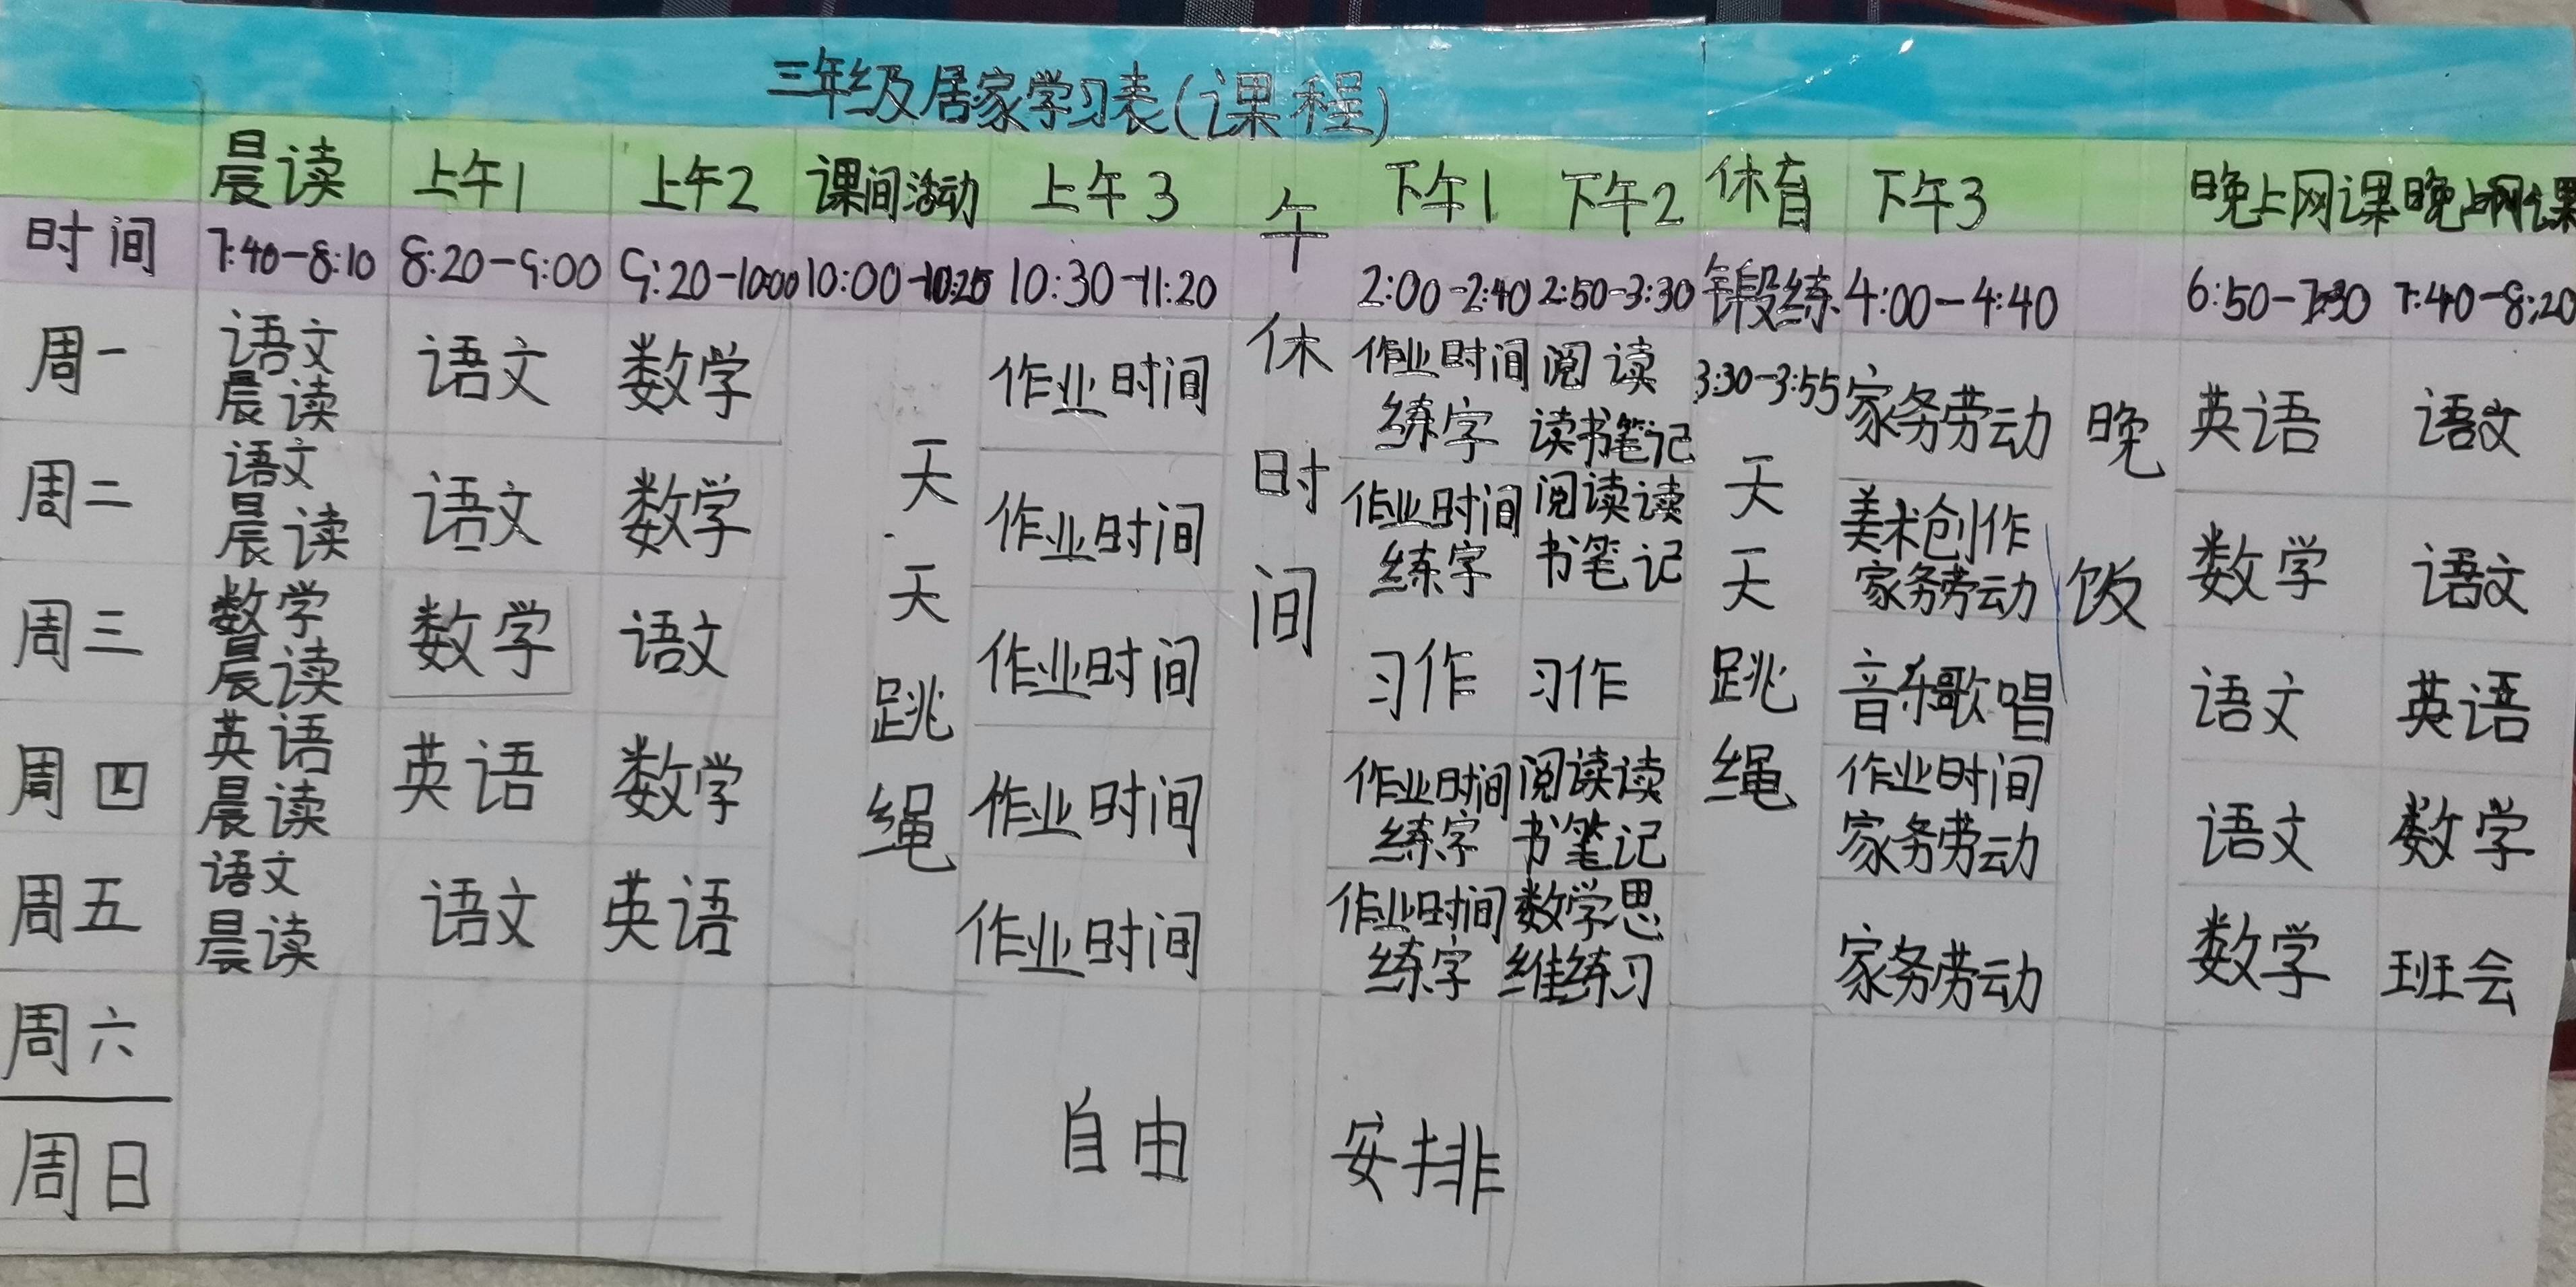 三年级居家学习表(课程)
晨读 上午1 上午2 课间活动 上午3 午休时间 下午1 下午2 休育锻练 下午3 晚饭 晚上网课 晚上网课
时间 7:40-8:10 8:20-9:00 9:20-10:00 10:00-10:20 10:30-11:20 2:00-2:40 2:50-3:30 3:30-3:55 4:00-4:40 6:50-7:30 7:40-8:20
周一 语文晨读 语文 数学 天天跳绳 作业时间 作业时间练字 阅读读书笔记 天天跳绳 家务劳动 英语 语文
周二 语文晨读 语文 数学 作业时间 作业时间练字 阅读读书笔记 美术创作家务劳动 数学 语文
周三 数学晨读 数学 语文 作业时间 习作 习作 音乐歌唱 语文 英语
周四 英语晨读 英语 数学 作业时间 作业时间练字 阅读读书笔记 作业时间家务劳动 语文 数学
周五 语文晨读 语文 英语 作业时间 作业时间练字 数学思维练习 家务劳动 数学 班会
周六
自由安排
周日